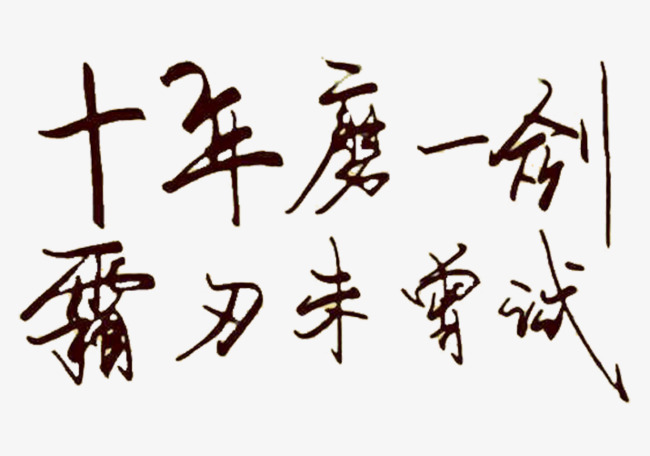 十年磨一剑
霜刃未曾试